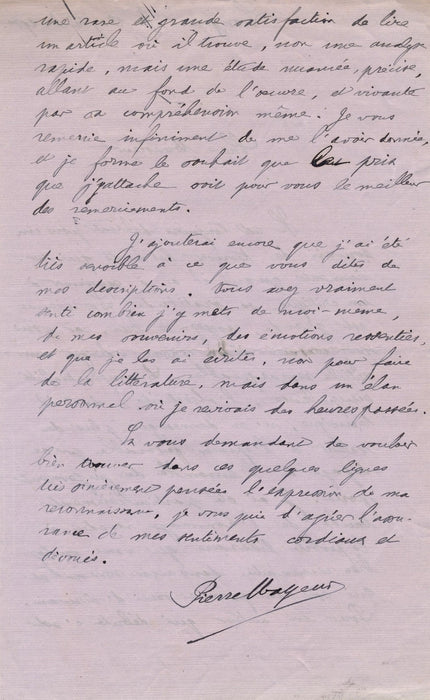 une rare et grande satisfaction de lire
un article où il trouve, non une analyse
rapide, mais une étude nuancée, précise,
allant au fond de l'œuvre, et vivante
par sa compréhension même. Je vous
remercie infiniment de me l'avoir donnée,
et je forme le souhait que le prix
que j'y attache soit pour vous le meilleur
des remerciements.
J'ajouterai encore que j'ai été
très sensible à ce que vous dites de
mes descriptions. Vous avez vraiment
senti combien j'y mets de moi-même,
de mes souvenirs, des émotions ressenties,
et que je les ai écrites, non pour faire
de la littérature, mais dans un élan
personnel où je revivais des heures passées.
En vous demandant de vouloir
bien trouver dans ces quelques lignes
très sincèrement pensées l'expression de ma
reconnaissance, je vous prie d'agréer l'assu-
rance de mes sentiments cordiaux et
dévoués.
Pierre